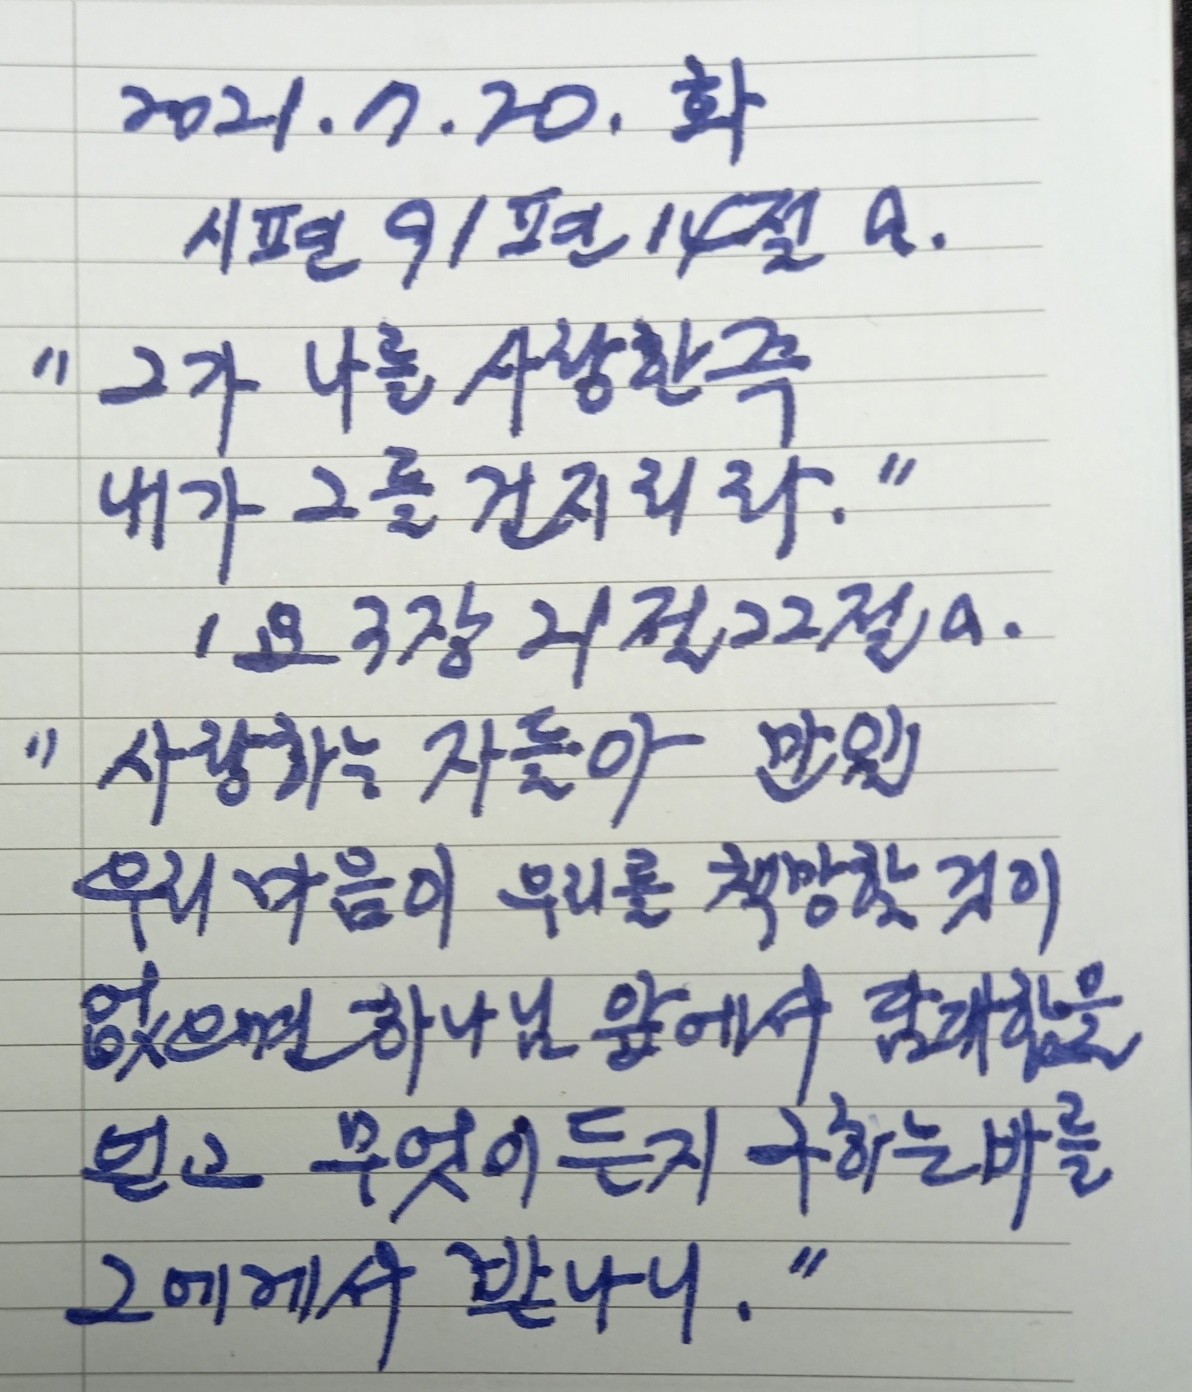 2021. 7. 20. 화
시편 91편 14절 a.
"그가 나를 사랑한즉
내가 그를 건지리라."
1요 3장 21절 22절 a.
"사랑하는 자들아 만일
우리 마음이 우리를 책망할 것이
없으면 하나님 앞에서 담대함을
얻고 무엇이든지 구하는 바를
그에게서 받나니."